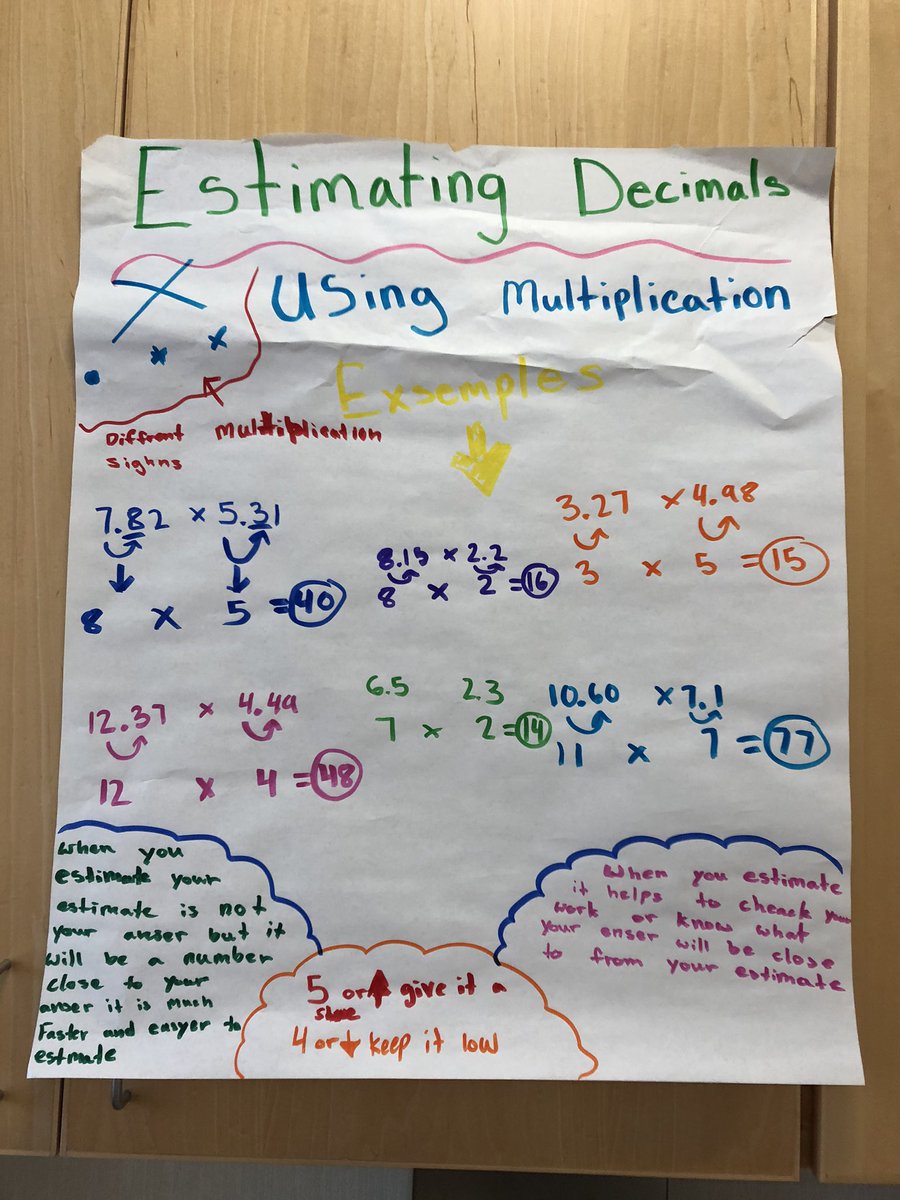 Estimating Decimals
Using Multiplication
Exsemples
Diffrent Multiplication
Sighns
7.82 x 5.31
8 x 5 = 40
8.15 x 2.2
8 x 2 = 16
3.27 x 4.98
3 x 5 = 15
12.37 x 4.49
12 x 4 = 48
6.5 2.3
7 x 2 = 14
10.60 x 7.1
11 x 7 = 77
When you
estimate your
estimate is not
your anser but it
will be a number
close to your
anser it is much
Faster and easyer to
estmate
5 or ↑ give it a
4 or ↓ keep it low
When you estimate
it helps to cheack your
work or know what
your anser will be close
to from your estimate